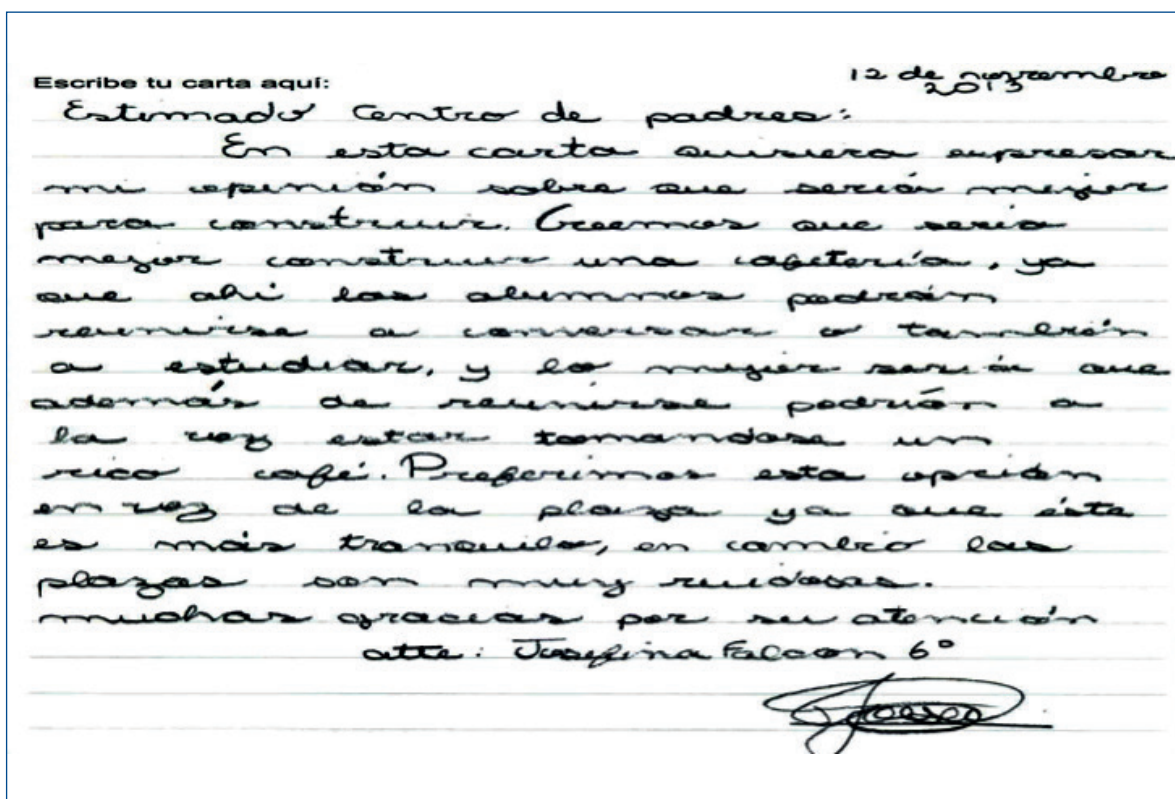 Escribe tu carta aquí:
12 de noviembre
2013
Estimado Centro de padres:
En esta carta quisiera expresar
mi opinión sobre que sería mejor
para construir. Creemos que sería
mejor construir una cafetería, ya
que ahí los alumnos podrán
reunirse a conversar o también
a estudiar, y lo mejor sería que
además de reunirse podrían a
la vez estar tomandose un
rico café. Preferimos esta opción
en vez de la plaza ya que ésta
es más tranquila, en cambio las
plazas son muy ruidosas.
muchas gracias por su atención
atte: Josefina Falcon 6°